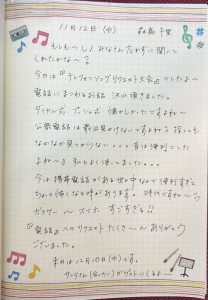 11月12日(水) 森高千里
もしも～し！みなさん忘れずに聞いて
くれたかな～？
今日は『テレフォンソングリクエスト大会』でしたよ～
電話にまつわるお話 沢山頂きました。
ダイヤル式 プッシュ式 懐かしかったですよね～
公衆電話は最近見かけないですよね? 探しても
なかなか見つからない・・・昔は便利でした
よね～♪ 私もよく使ってました・・・
今は携帯電話がある世の中なので便利すぎて
ちょっと怖くなる時があります! 時代ですね～
ガラケー～スマホ すごすぎる!!
『電話』へのリクエスト たくさ～ん ありがとう
ございました。
来日は12月10日(水)です。
がゲストにくるよ—